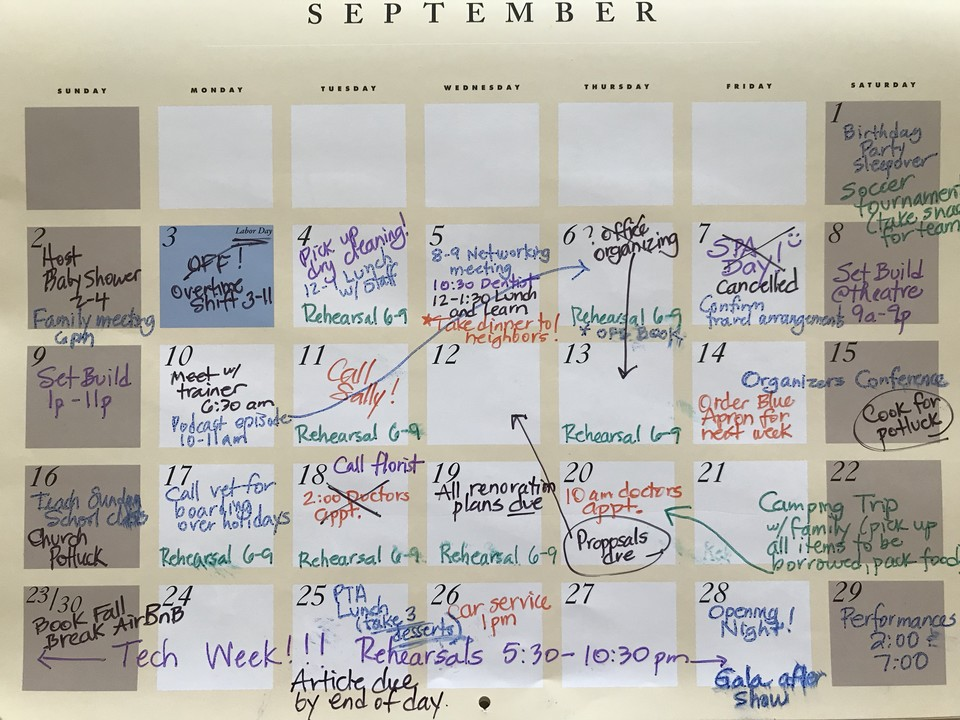 SEPTEMBER
SUNDAY MONDAY TUESDAY WEDNESDAY THURSDAY FRIDAY SATURDAY
1
Birthday
Party
sleepover
Soccer
tournament
(take snac
for team
2
Host
Baby Shower
2-4
Family meeting
6pm
3
Labor Day
OFF!
overtime
shift 3-11
4
Pick up
dry cleaning!
12-1 Lunch
w/ staff
Rehearsal 6-9
5
8-9 Networking
meeting
10:30 Dentist
12-1:30 Lunch
and learn
*Take dinner to
neighbors!
6
? office
organizing
Rehearsal 6-9
* OFF BOOK
7
SPA
Day!
cancelled
Confirm
travel arrangements
8
Set Build
@theatre
9a-9p
9
Set Build
1p-11p
10
Meet w/
trainer
6:30 am
Podcast episode
10-11am
11
Call
Sally!
Rehearsal 6-9
12
13
Rehearsal 6-9
14
Organizers Conference
Order Blue
Apron for
next week
15
Cook for
potluck
16
Teach Sunday
School class
Church
Potluck
17
Call vet for
boarding
over holidays
Rehearsal 6-9
18
Call florist
2:00 Doctors
appt.
Rehearsal 6-9
19
All renovation
plans due
Rehearsal 6-9
20
10 am doctors
appt.
Proposals
due
21
22
Camping Trip
w/family (pick up
all items to be
borrowed, pack food
23/30
Book Fall
Break AirBnB
24
25
PTA
Lunch
(take 3
desserts)
26
Car service
1pm
27
28
Opening
Night!
29
Performances
2:00 &
7:00
Tech Week!!! Rehearsals 5:30-10:30pm
Article due
by end of day.
Gala after
show